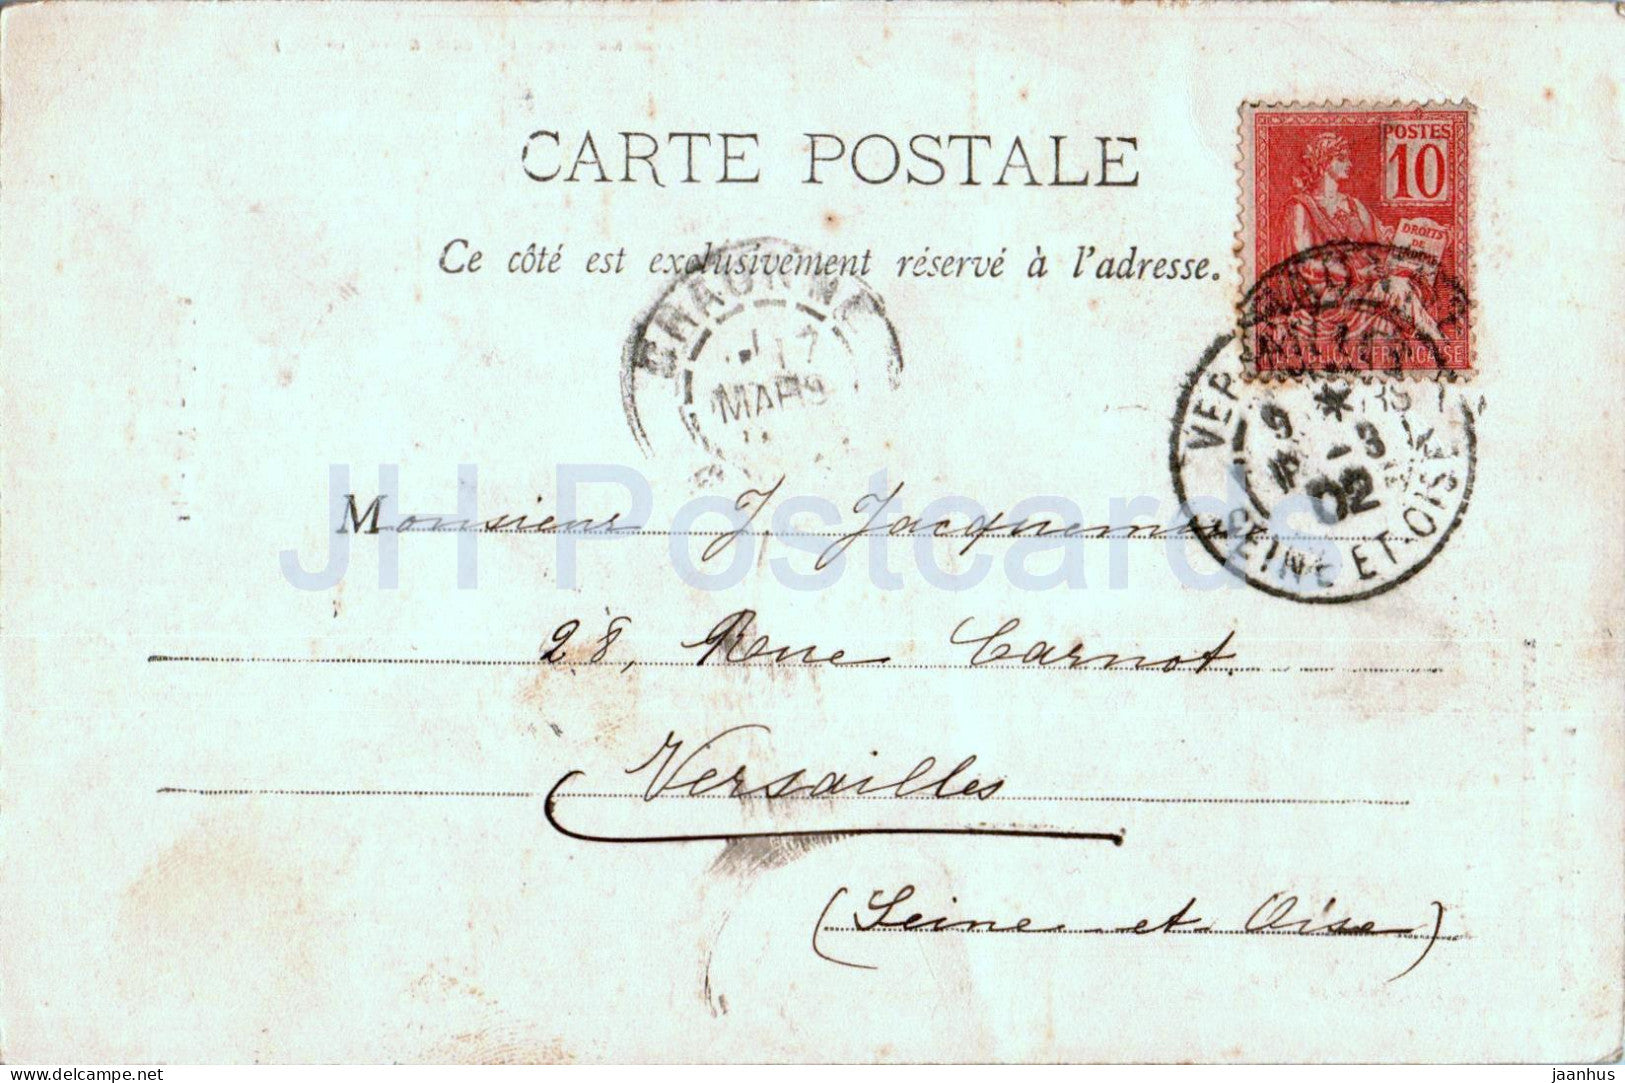 CARTE POSTALE
Ce côté est exclusivement réservé à l'adresse.
POSTES
10
DROITS
DE
REPUBLIQUE FRANCAISE
MARS
9 * 3
02
SEINE ET-OISE
JH Postcards
Monsieur J. Jacquemin
28, Rue Carnot.
Versailles
(Seine et Oise)
delcampe.net
jaanhus